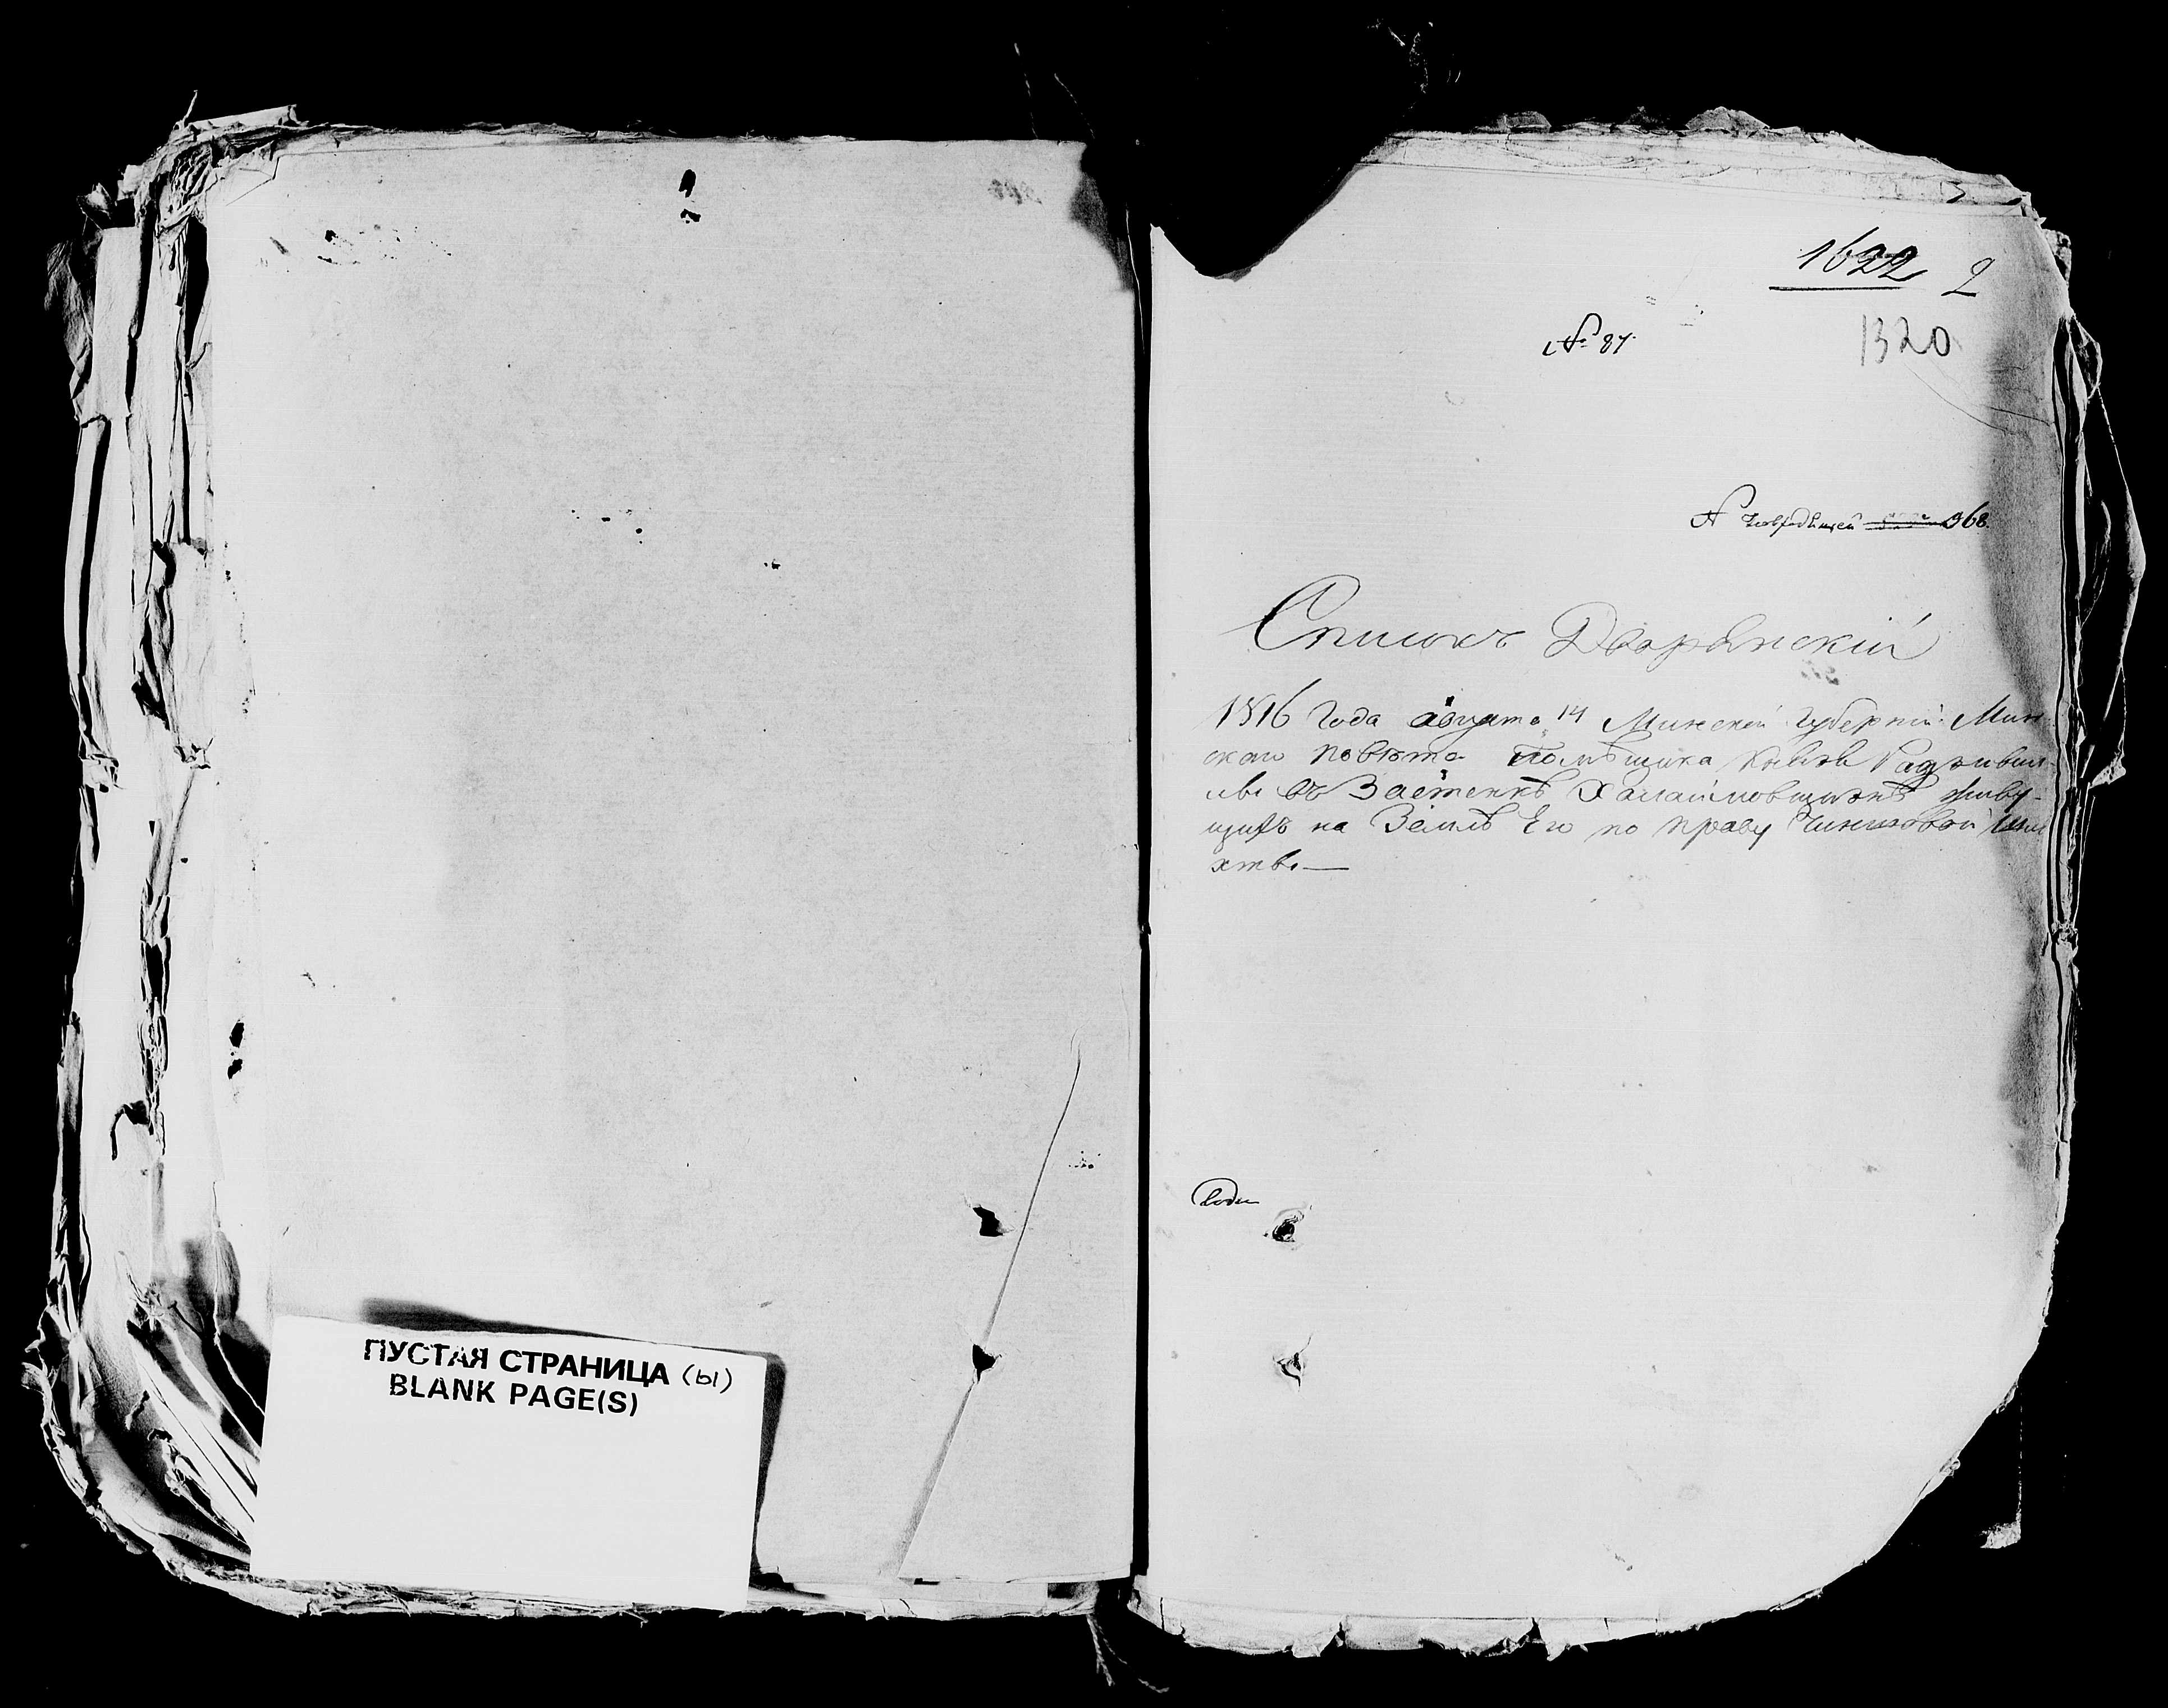 ПУСТАЯ СТРАНИЦА (ы)
BLANK PAGE(S)
1622 2
1320
№ 87.
968.
Списокъ Дворянскій
1816 Года августа 14 Минской Губерніи Мин
скаго повѣта помѣщика Князя Радзивил
лы въ Застенкѣ Халаимовщизнѣ живу-
щихъ на Землѣ Его по праву Чиншовой Шля
хты.—